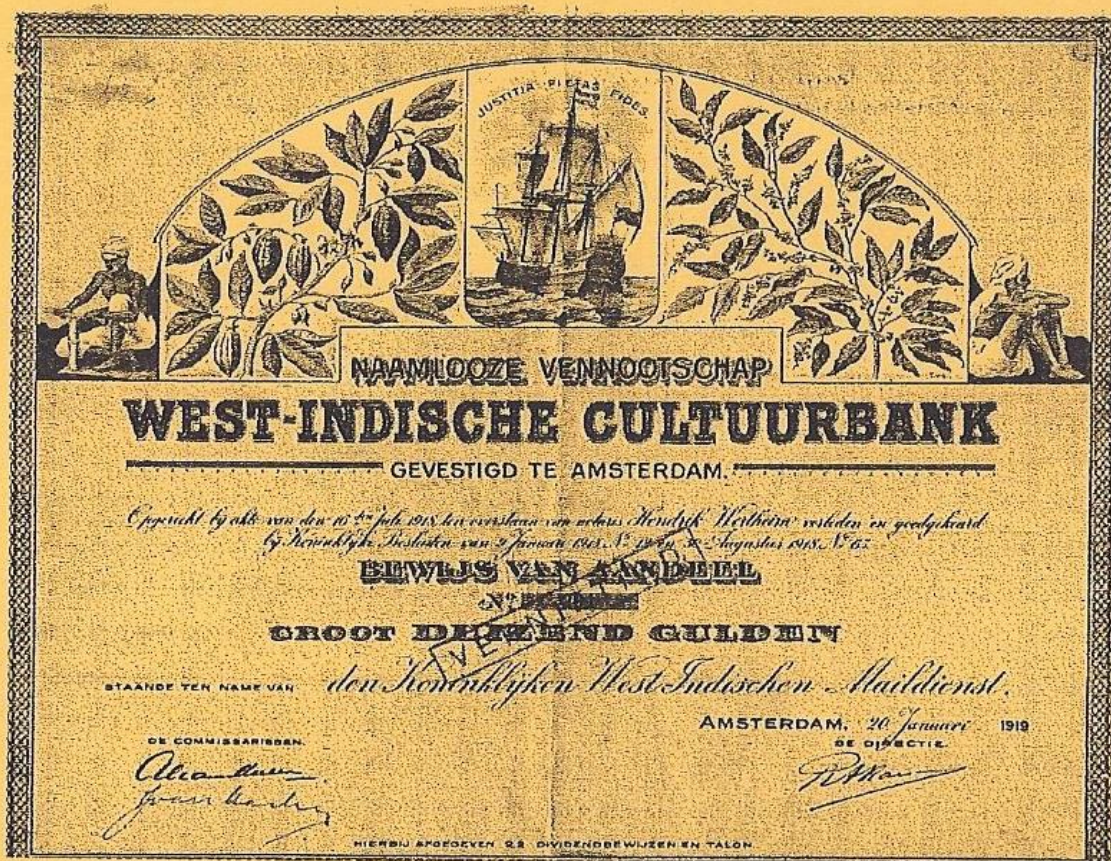 JUSTITIA PIETAS FIDES
NAAMLOOZE VENNOOTSCHAP
WEST-INDISCHE CULTUURBANK
GEVESTIGD TE AMSTERDAM.
Opgericht bij akte van den 16den Juli 1918 ten overstaan van notaris Hendrik Wertheim verleden en goedgekeurd
bij Koninklijke Besluiten van Januari 1918 No en Augustus 1918 No
BEWIJS VAN AANDEEL
No
GROOT DUIZEND GULDEN
VERNIETIGD
STAANDE TEN NAME VAN den Koninklijken West Indischen Maildienst.
AMSTERDAM, 20 Januari 1919
DE COMMISSARISSEN.
DE DIRECTIE.
HIERBIJ AFGEGEVEN 22 DIVIDENDBEWIJZEN EN TALON.